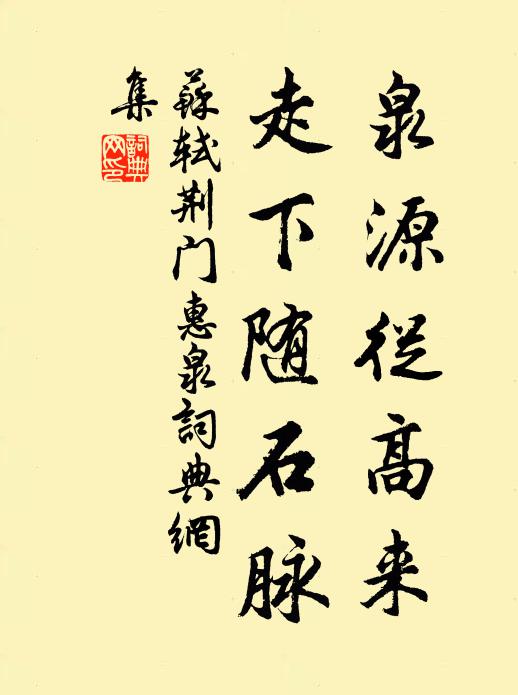 泉源從高来
走下随石脉
蘇軾荆门惠泉詞典網
集
詞典网印